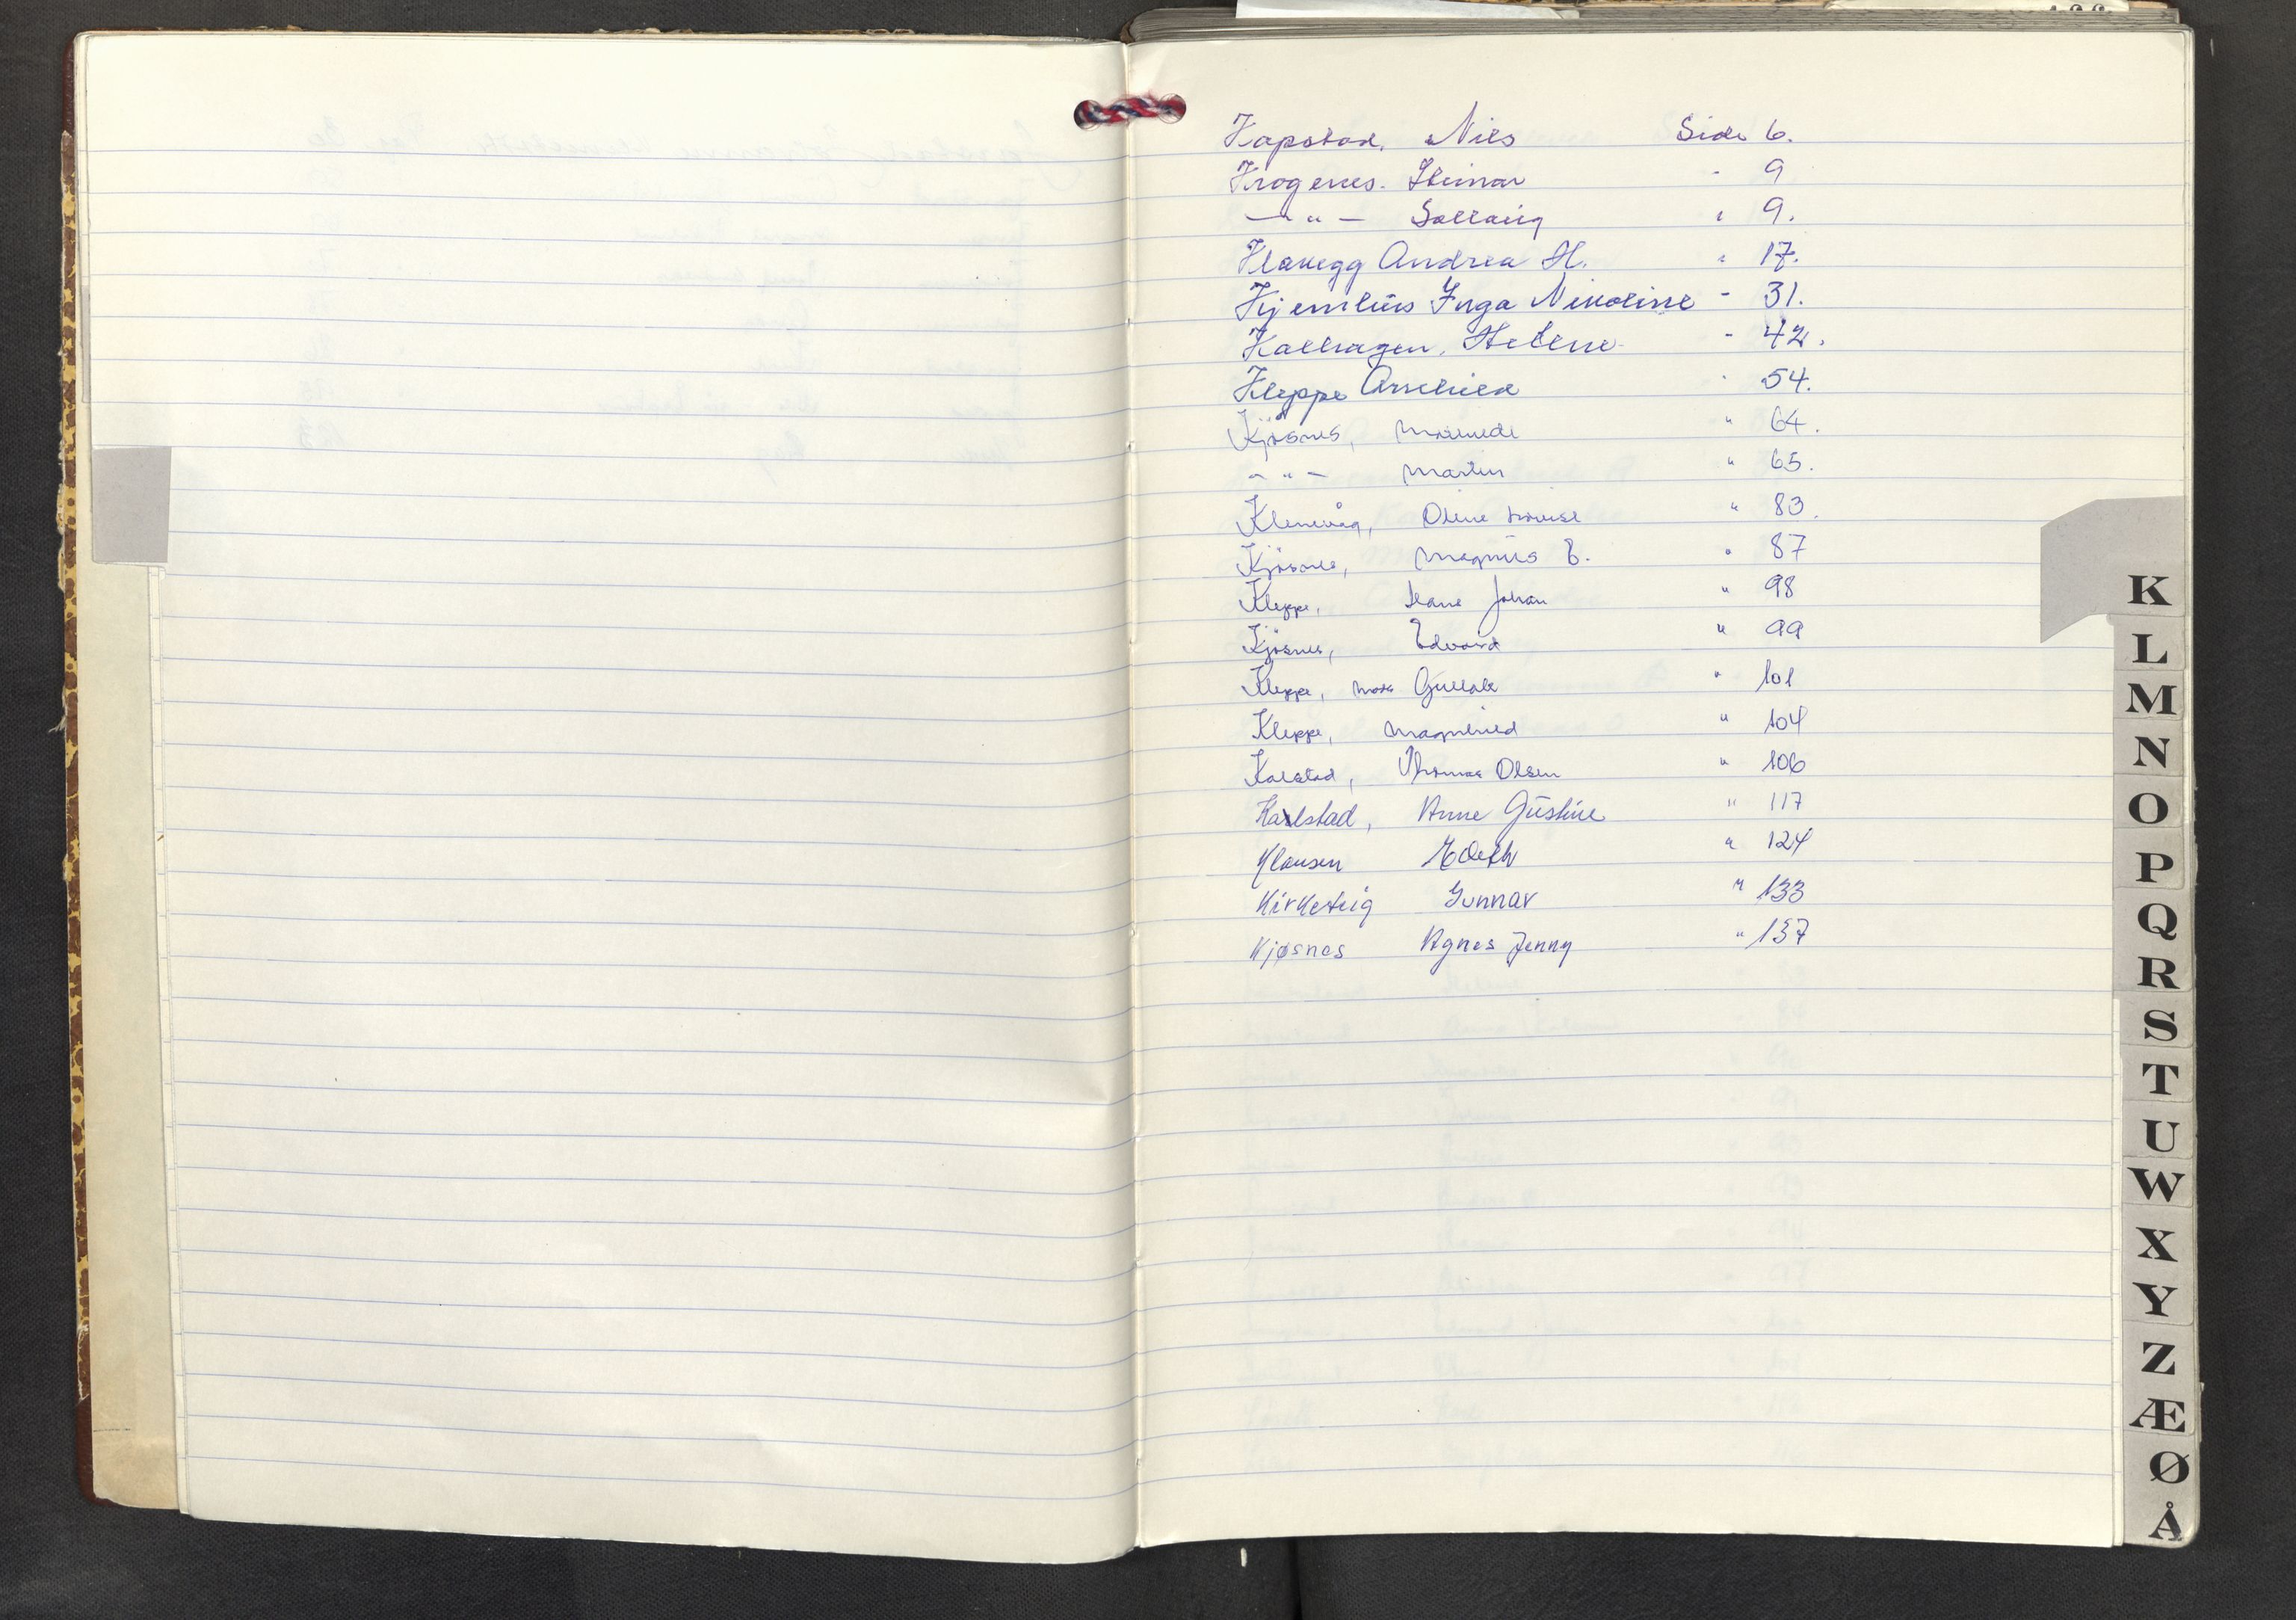 Kapstad, Nils Side 6.
Krogenes. Steinar - 9
— " — Solveig " 9.
Klauegg Andrea H. " 17.
Kjemhus Inga Nikoline - 31.
Kalhagen, Helene - 42.
Kleppe Arnhild " 54.
Kjøsnes, " 64.
- " - Martin " 65.
Klenevåg, Oline Lovise " 83.
Kjøsnes, Magnus E. " 87
Kleppe, Hans Johan " 98
Kjøsnes, Edvard " 99
Kleppe, Gullak " 101
Kleppe, Magnhild " 104
Kalstad, Thomas Olsen " 106
Kalstad, Anne Gustine " 117
Klausen Edith " 124
Kirketeig Gunnar " 133
Kjøsnes Agnes Jenny " 137
K
L
M
N
O
P
Q
R
S
T
U
W
X
Y
Z
Æ
Ø
Å